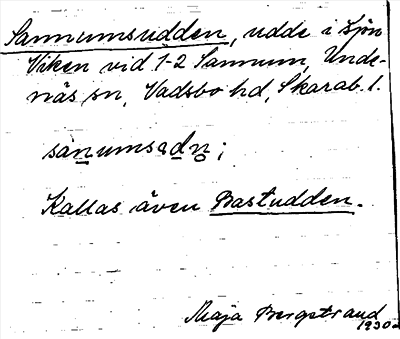 Sannumsudden, udde i sjön
Viken vid 1-2 Sannum, Unde-
näs sn, Vadsbo hd, Skarab. l.
sanumsədn;
Kallas även Bastudden.
Maja Bergstrand
1930